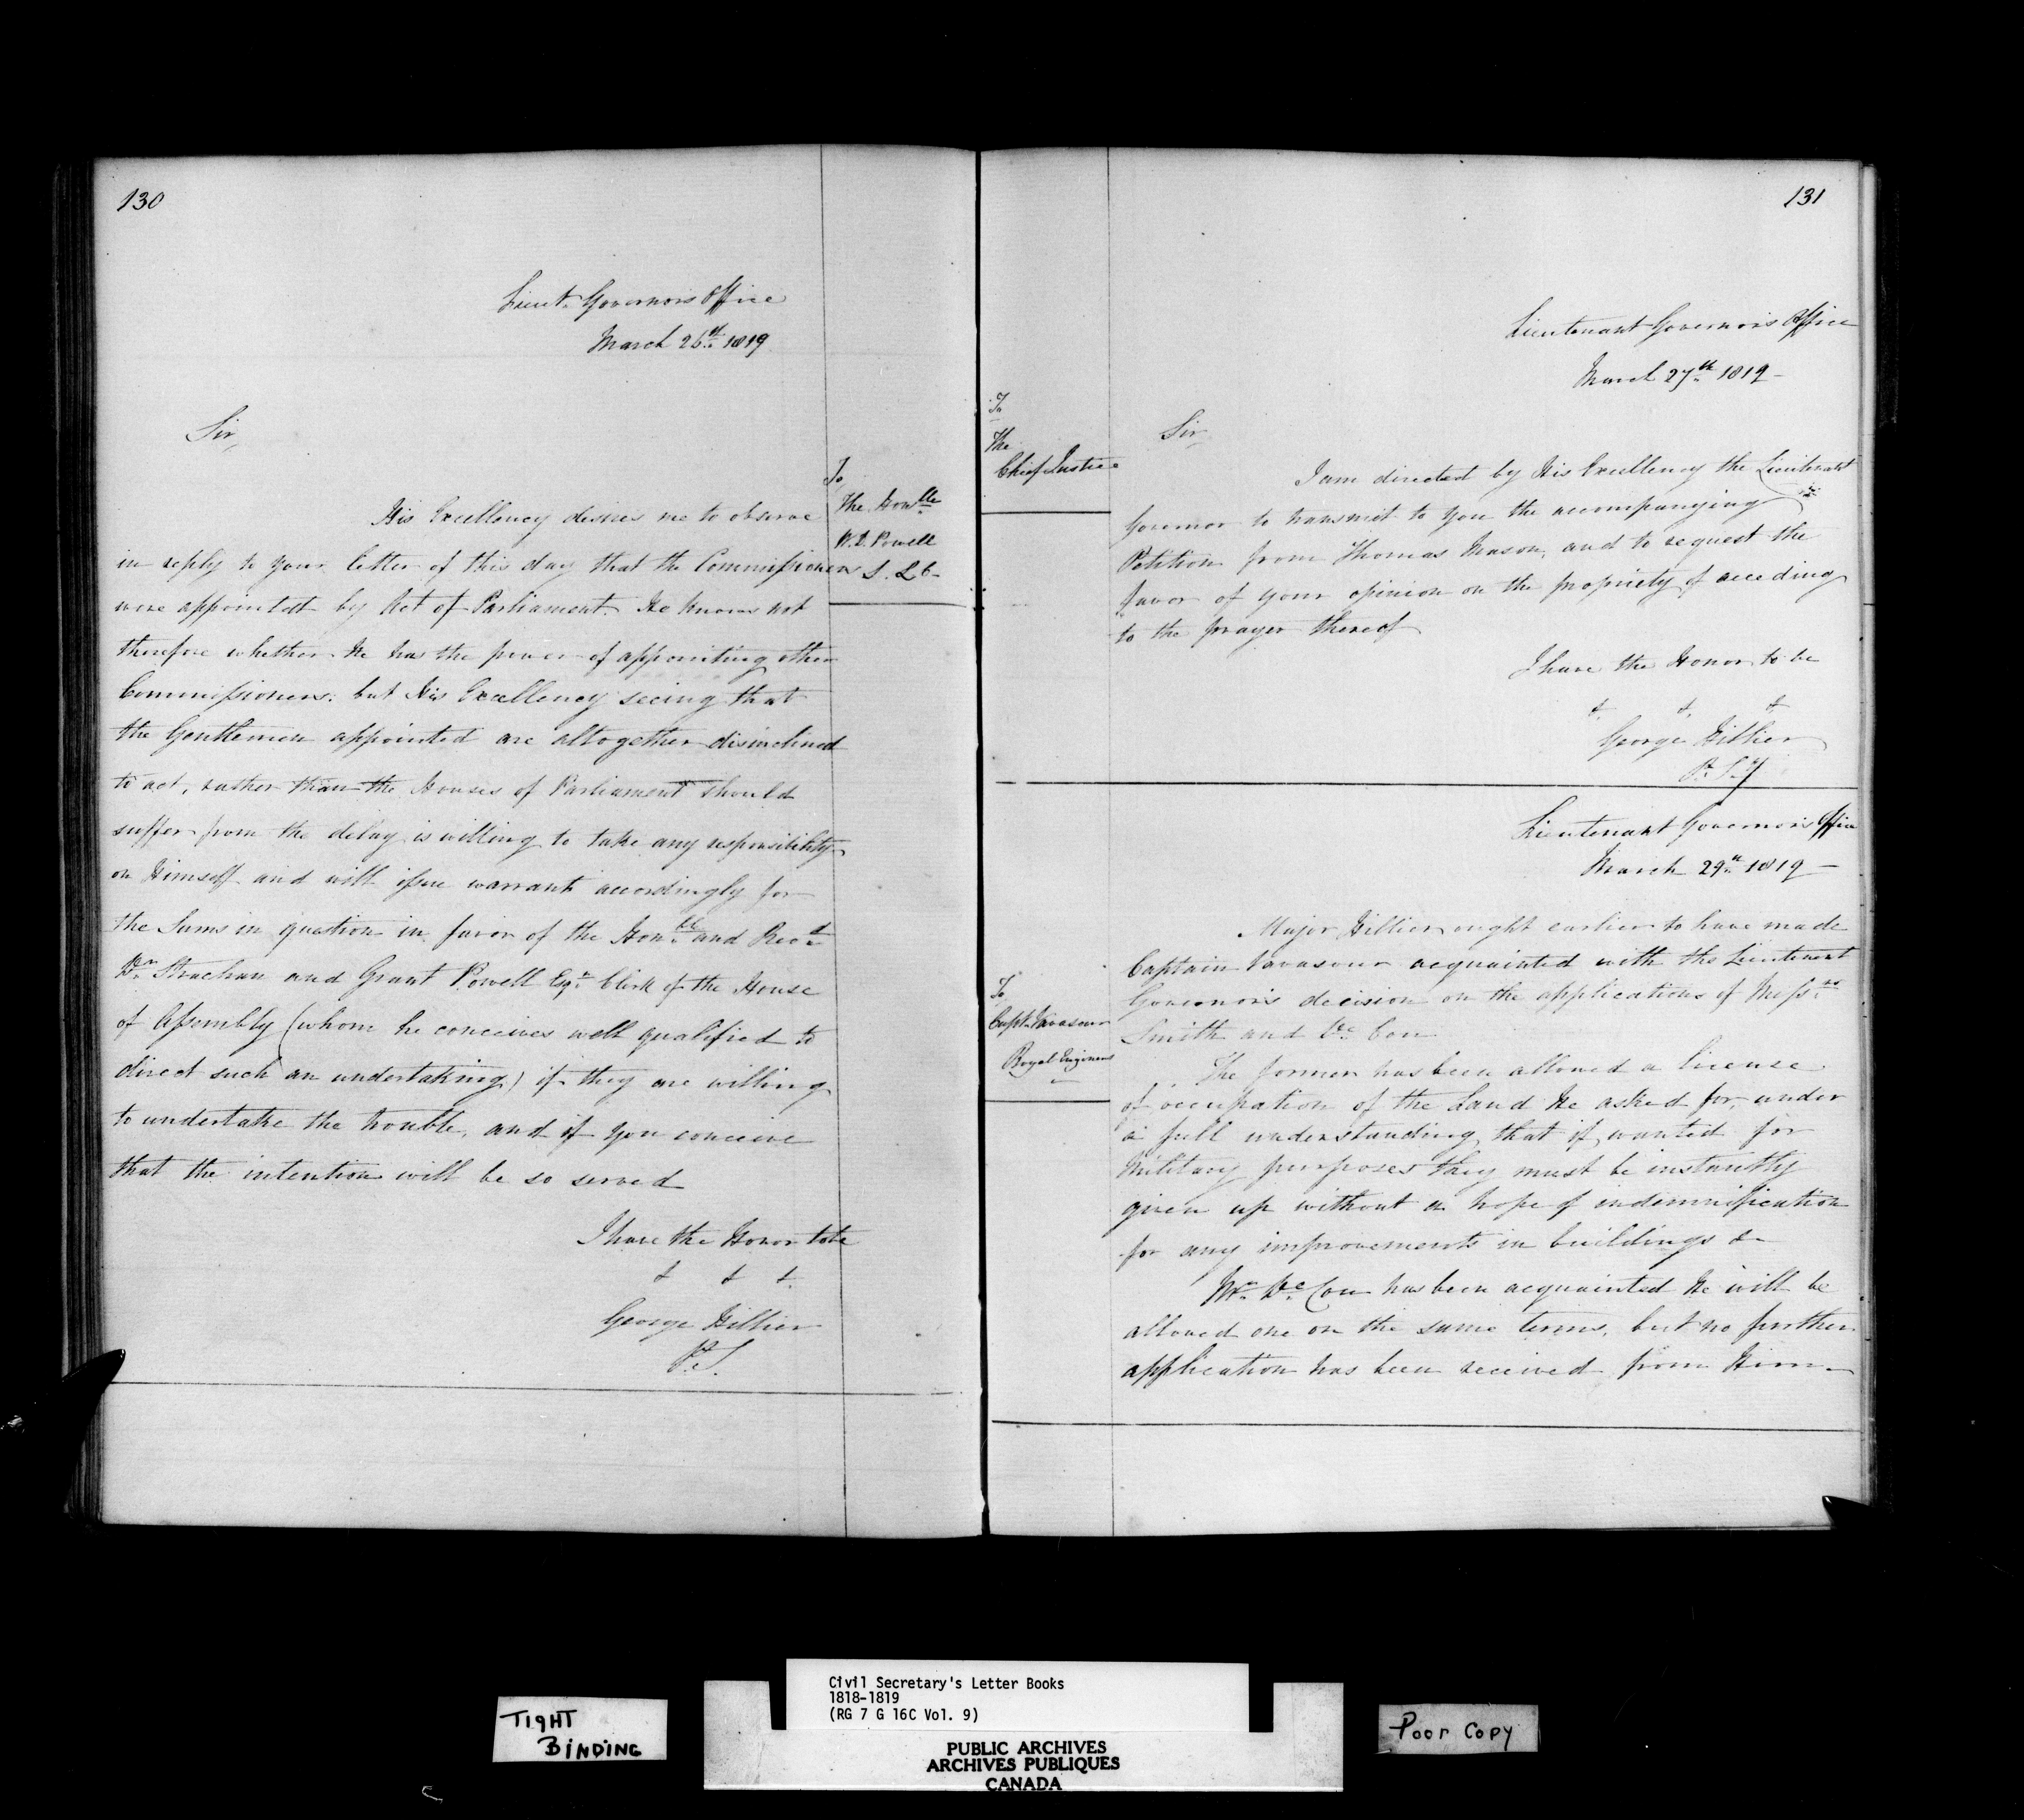 130
Lieut. Governors Office
March 26th 1819
Sir,
To
The Honble
W. D. Powell
S. L C
His Excellency desires me to observe
in reply to your letter of this day that the Commissioners
were appointed by Act of Parliament. He knows not
therefore whether He has the power of appointing other
Commissioners: but His Excellency seeing that
the Gentlemen appointed are altogether disinclined
to act, rather than the Houses of Parliament should
suffer from the delay is willing to take any responsibility
on Himself and will issue warrants accordingly for
the Sums in question in favor of the Honble and Revd
Dr Strachan and Grant Powell Esqr Clerk of the House
of Assembly (whom he conceives well qualified to
direct such an undertaking) if they are willing
to undertake the trouble, and if you conceive
that the intention will be so served
I have the Honor to be
& & &
George Hillier
P. S.
131
Lieutenant Governors Office
March 27th 1819 -
To
The
Chief Justice
Sir,
I am directed by His Excellency the Lieutenant
Governor to transmit to you the accompanying
Petition from Thomas Mason, and to request the
favor of your opinion on the propriety of acceding
to the prayer thereof
I have the Honor to be
& & &
George Hillier
P. S.y
Lieutenant Governors Office
March 29th 1819 -
To
Capt. Vavasour
Royal Engineers
Major Hillier ought earlier to have made
Captain Vavasour acquainted with the Lieutenant
Governor's decision on the applications of Messrs
Smith and De Cou
The former has been allowed a license
of occupation of the Land He asked for, under
a full understanding that if wanted for
Military purposes they must be instantly
given up without a hope of indemnification
for any improvements in buildings &c
Mr De Cou has been acquainted He will be
allowed one on the same terms, but no further
application has been received from Him -
TIGHT
BINDING
Civil Secretary's Letter Books
1818-1819
(RG 7 G 16C Vol. 9)
PUBLIC ARCHIVES
ARCHIVES PUBLIQUES
CANADA
Poor Copy